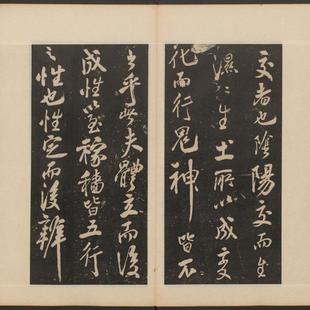 交者也陰陽交而生
濕〻生土所以成变
化而行鬼神皆不
出乎此夫體立而後
成性以至稼穡皆五行
之性也性定而後辨